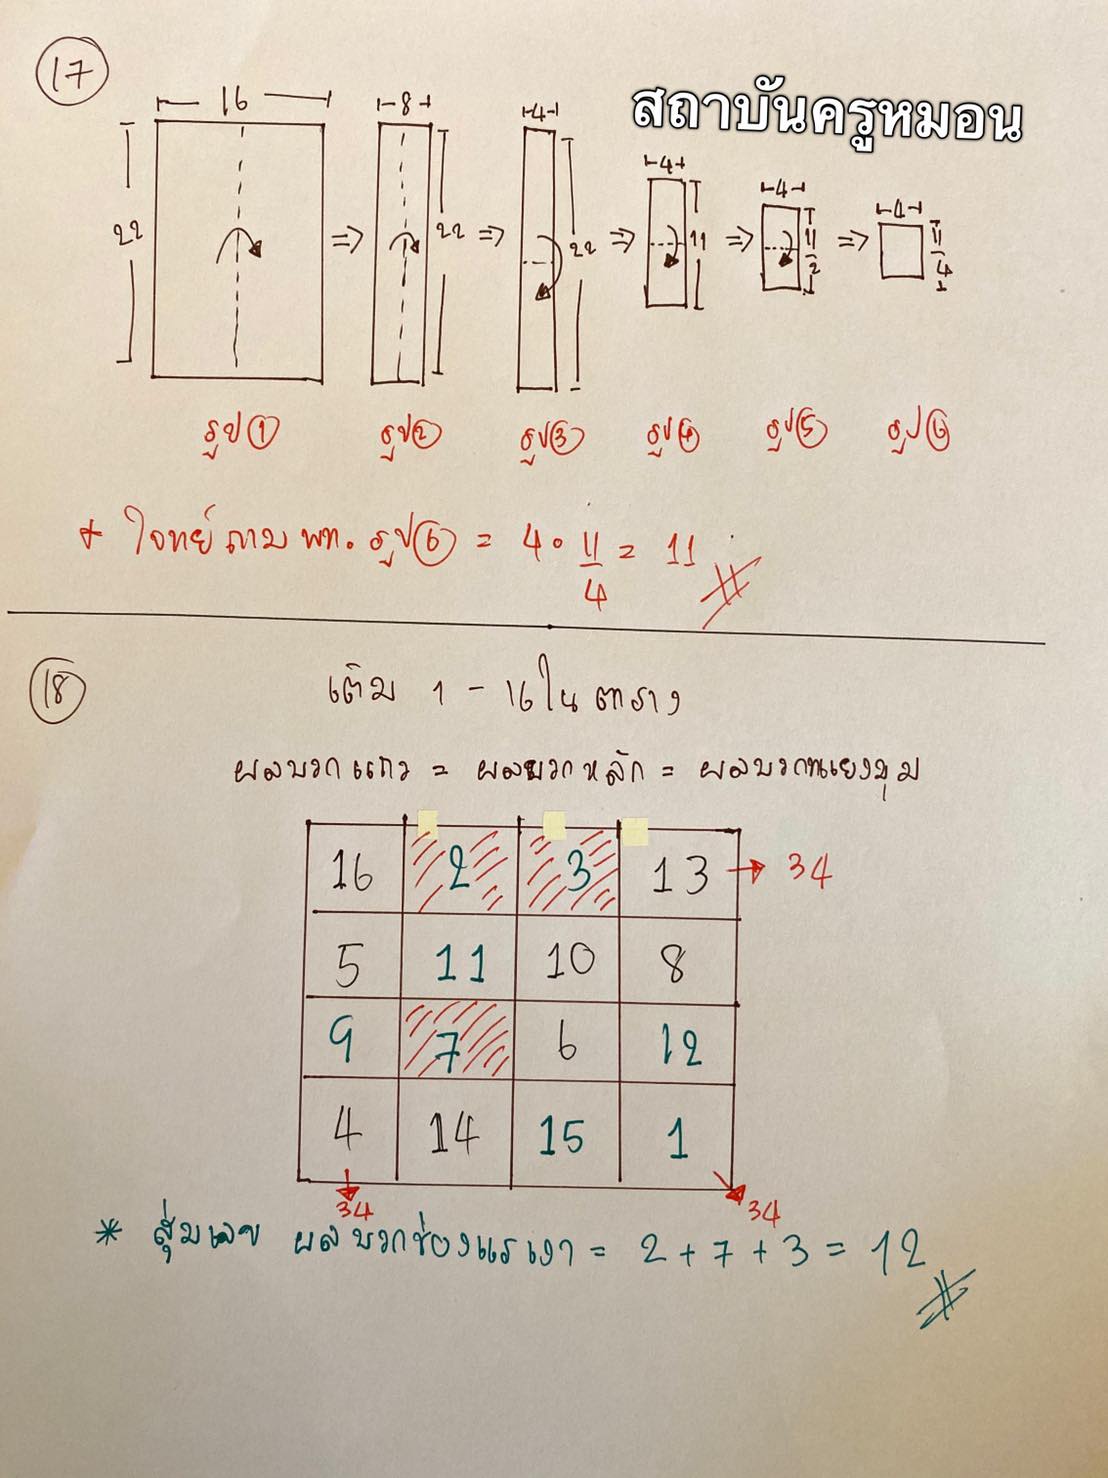 17
สถาบันครูหมอน
16 8 4 4 4 4
22 22 22 11 11/2 11/4
⇒ ⇒ ⇒ ⇒ ⇒
รูป① รูป② รูป③ รูป④ รูป⑤ รูป⑥
* โจทย์ถาม พท. รูป⑥ = 4 · 11/4 = 11
18
เติม 1 - 16 ใน ตาราง
ผลบวกแถว = ผลบวกหลัก = ผลบวกทแยงมุม
16 2 3 13 → 34
5 11 10 8
9 7 6 12
4 14 15 1
34 34
* สุ่มเลข ผลบวกช่องแรเงา = 2 + 7 + 3 = 12